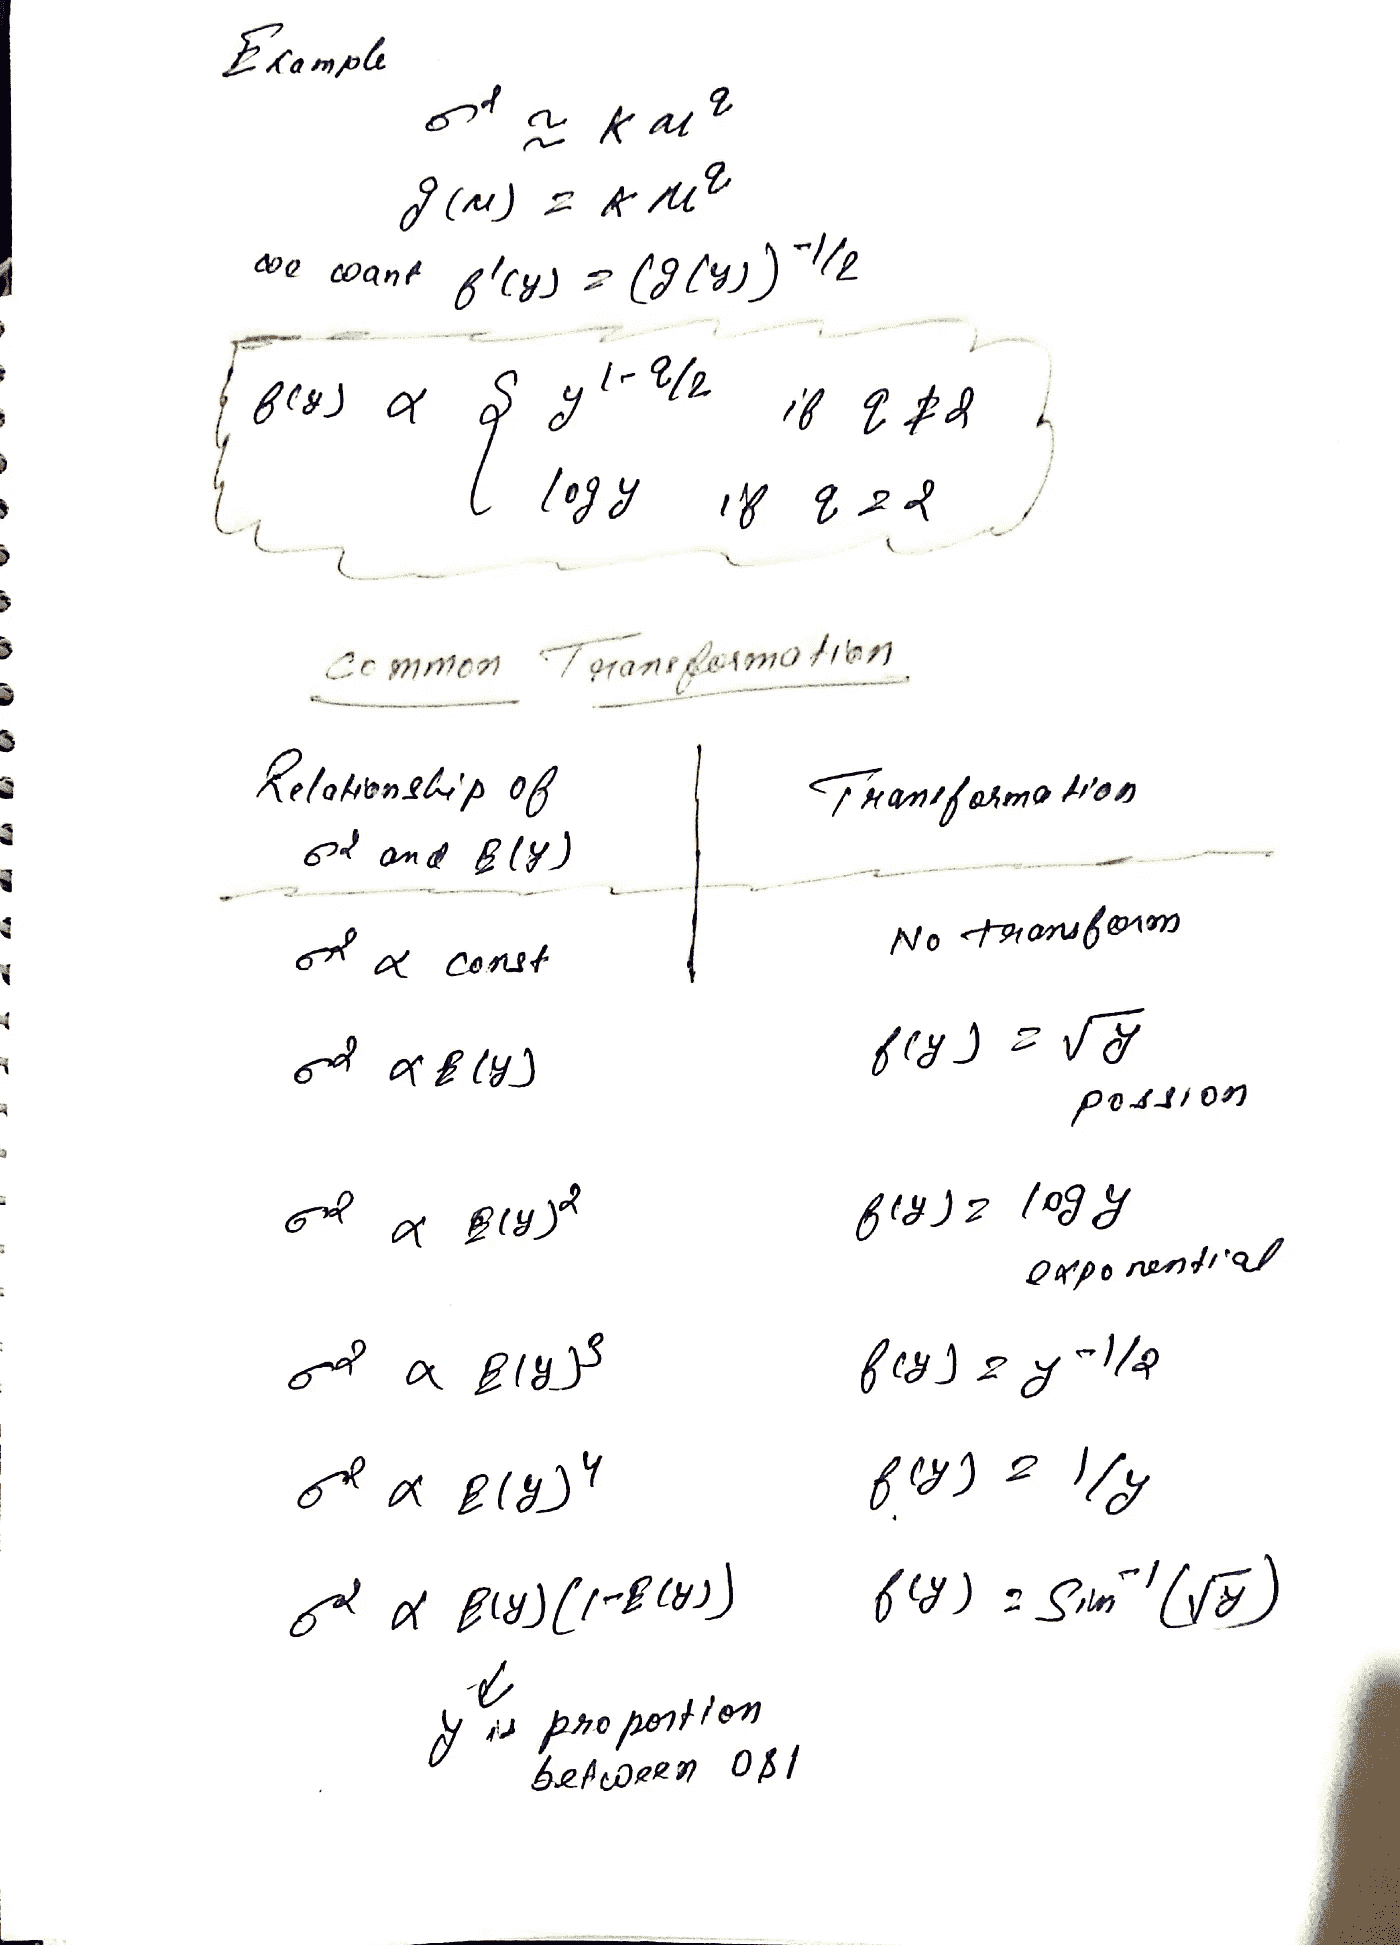 Example
σ² ≈ k μ^q
g(μ) = k μ^q
we want f'(y) = (g(y))^-1/2
f(y) ∝ { y^1-q/2 if q ≠ 2
log y if q = 2
Common Transformation
Relationship of
σ² and E(y)
Transformation
σ² ∝ const No transform
σ² ∝ E(y) f(y) = √y
possion
σ² ∝ E(y)² f(y) = log y
exponential
σ² ∝ E(y)³ f(y) = y^-1/2
σ² ∝ E(y)⁴ f(y) = 1/y
σ² ∝ E(y)(1-E(y)) f(y) = Sin⁻¹(√y)
y is proportion
between 0&1